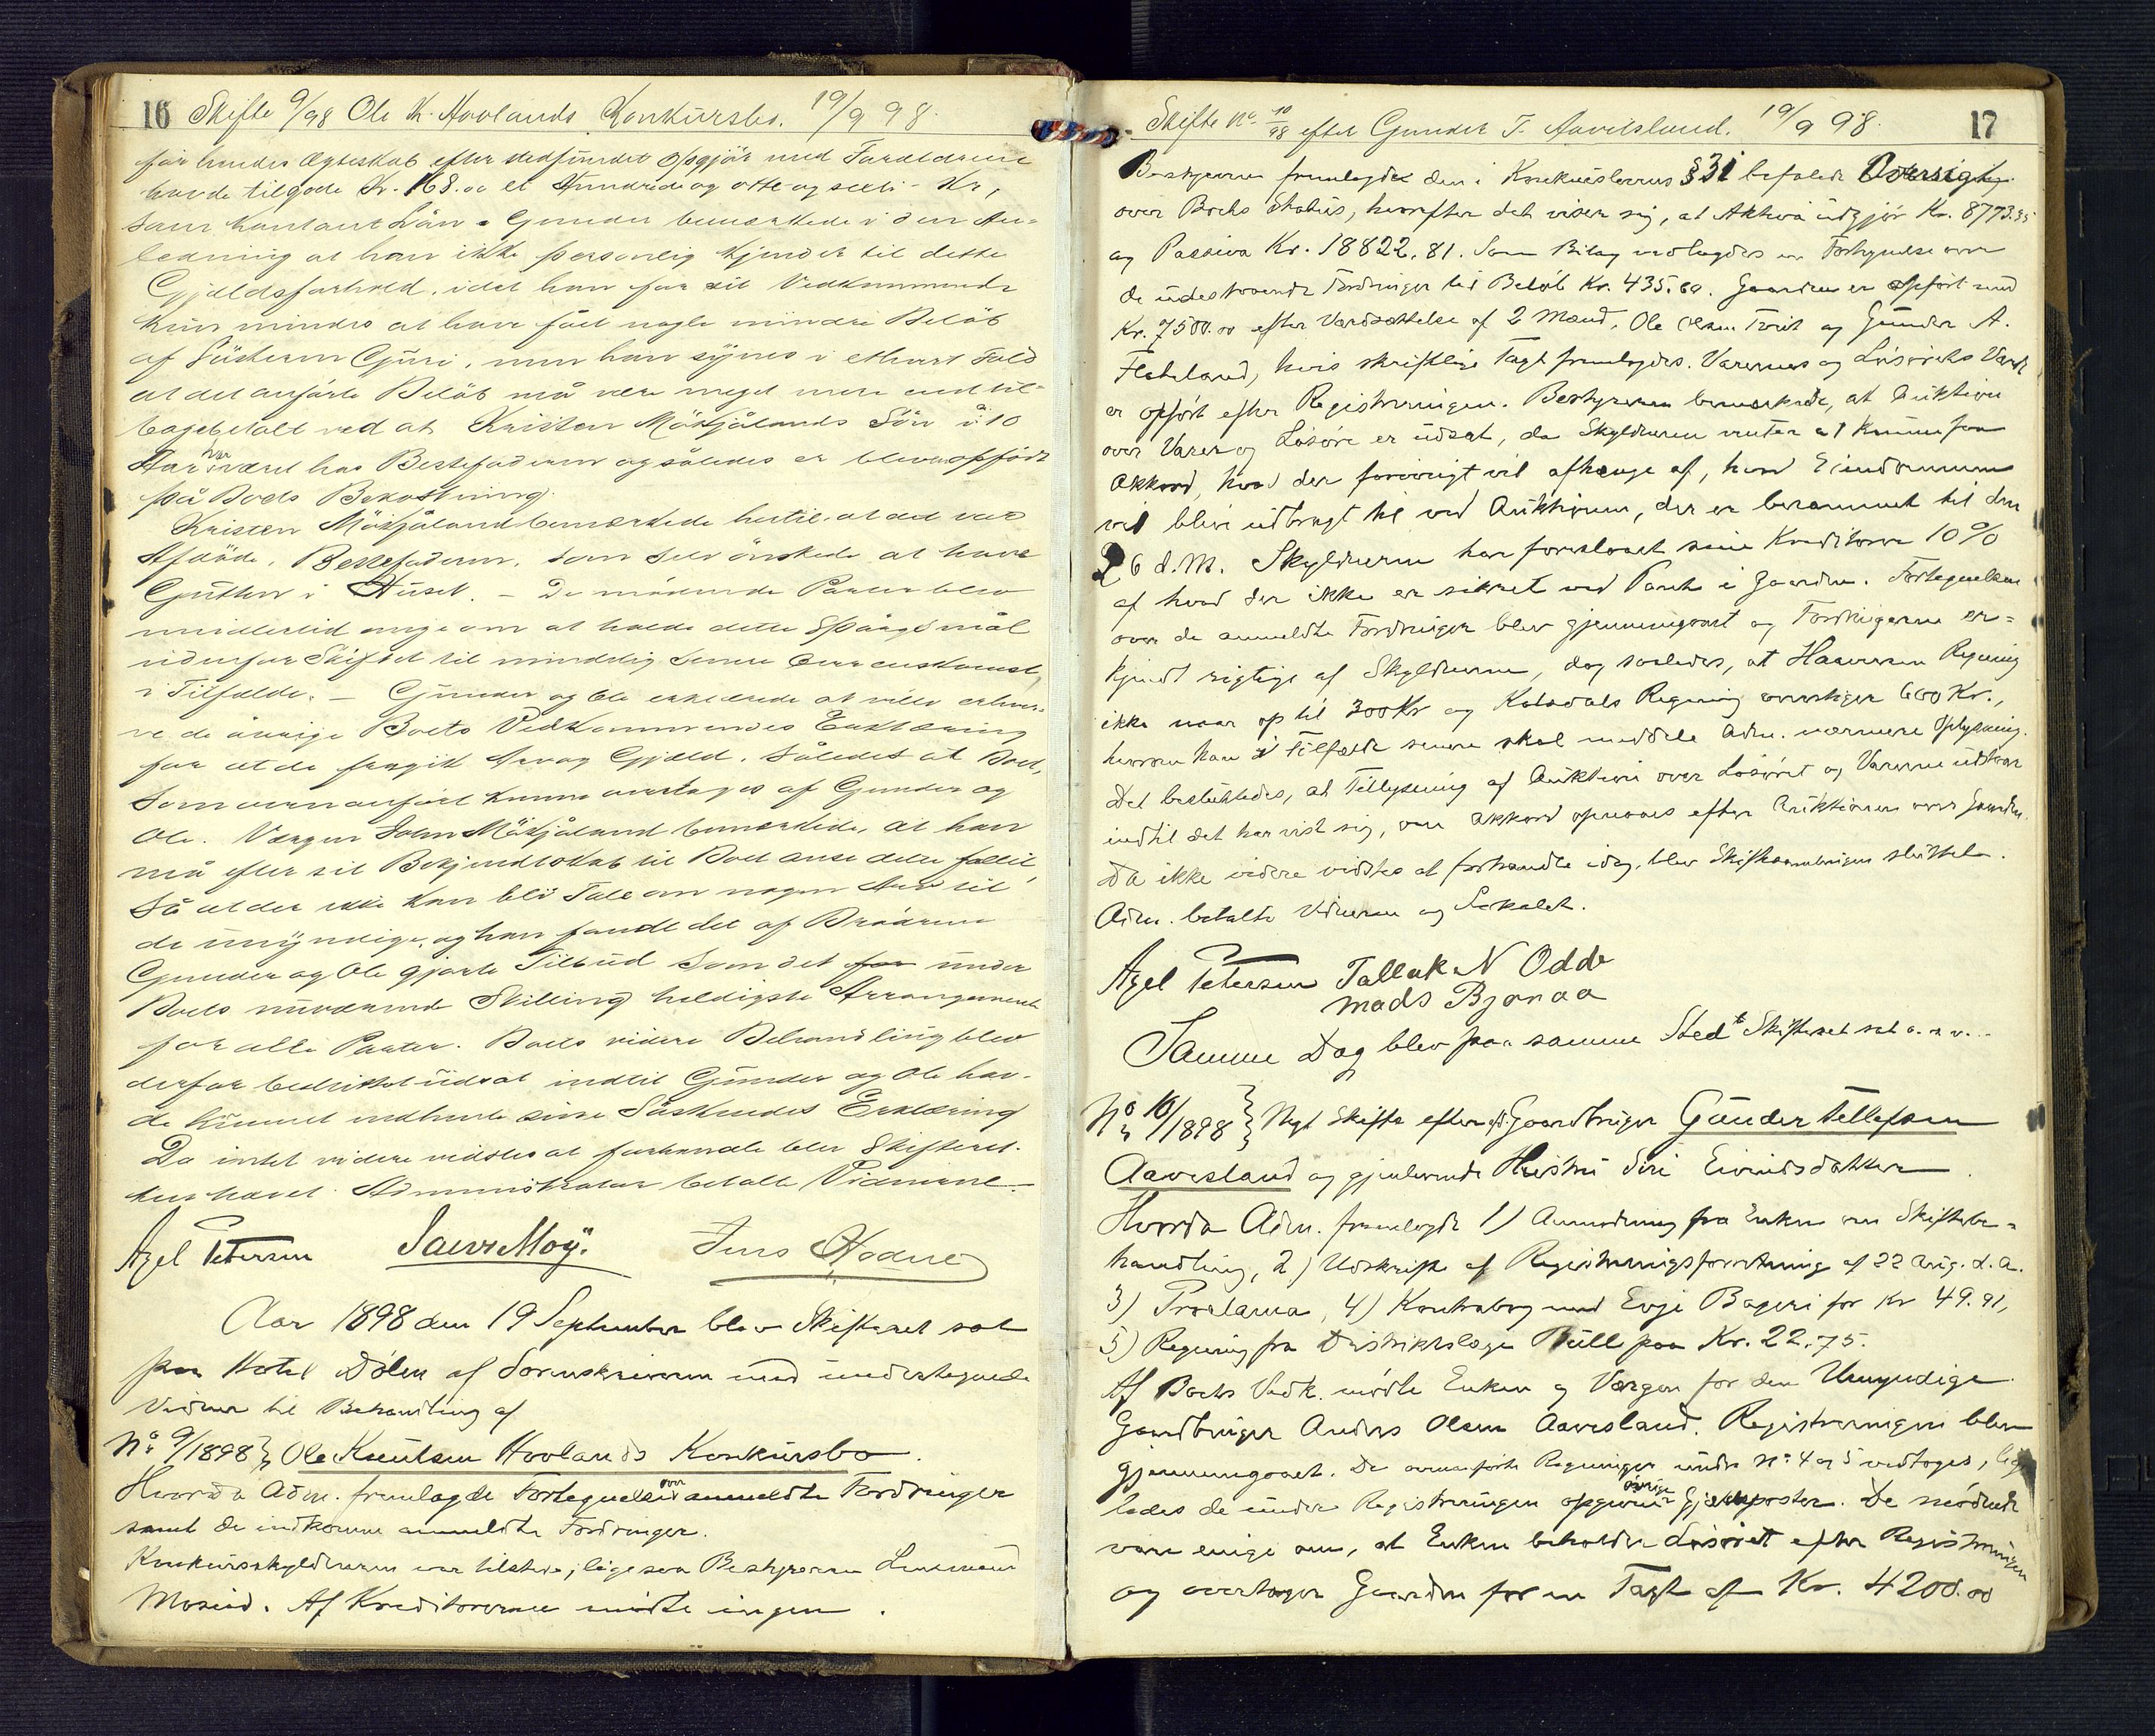 16 Skifte 9/98 Ole K. Hovlands Konkursbo. 19/9 98.
før hendes Ægteskab efter stedfundet Opgjör med Forældrene
havde tilgode Kr. 168.00 et Hundrede og otte og seeti - Kr,
som kontant Lån. Gunder bemærkede i den An-
ledning at han ikke personlig kjender til dette
Gjældsforhold, idet han for sit Vedkommende
kun mindes at have fået nogle mindre Beløb
af Søsteren Guri, men han synes i ethvert Fald
at det anførte Beløb må være meget mere end til-
bagebetalt ved at Kristen Mösjålands Sön i 10
Aar har været hos Bestefaderen og således er bleven opfödt
på Boets Bekostning.
Kristen Mösjåland bemærkede hertil, at det var
Afdöde, Bestefaderen, som selv önskede at have
Gutten i Huset. - De mödende Parter blev
imidlertid enige om at holde dette Spörgsmål
udenfor Skiftet til mindelig senere Overenskomst,
i Tilfælde. - Gunder og Ole erklærede at ville erhver-
ve de övrige Boets Vedkommendes Erklæring
for at de fragik Arv og Gjæld, således at Boet,
som ovenanfört kunne overtages af Gunder og
Ole. Værgen John Mösjåland bemærkede, at han
må efter sit Bekjendtskab til Boet anse dette fallit,
så at der ikke kan bli Tale om nogen Arv til
de umyndige, og han fandt det af Brödrene
Gunder og Ole gjorte Tilbud som det for under
Boets nuværende Stilling heldigste Arrangement
for alle Parter. Boets videre Behandling blev
derfor besluttet udsat indtil Gunder og Ole hav-
de kunnet indhente sine Söskendes Erklæring
Da intet videre vidstes at forhandle blev Skifteret-
ten hævet. Administrator betalte Vidnerne.
Axel Petersen Saeves Moÿ. Jens Hodne
Aar 1898 den 19 September blev Skifteret sat
paa Hotel Dölen af Sorenskriveren med undertegnede
Vidner til Behandling af
No 9/1898 } Ole Knutsen Hovlands Konkursbo.
Hvorda Adm. fremlagde Fortegnelse over anmeldte Fordringer
samt de indkomne anmeldte Fordringer.
Konkursskyldneren var tilstede, ligesaa Bestyreren Lensmand
Moseid. Af Kreditorerne mödte ingen.
Skifte No. 10/98 efter Gunder T. Aavesland. 19/9 98. 17
Bestyreren fremlagde den i Konkurslovens § 31 befalede Oversigt
over Boets Status, hvorefter det viser sig, at Aktiva udgjör Kr. 8773.35
og Passiva Kr. 18822.81. Som Bilag vedlagdes en Fortegnelse over
de udestaaende Fordringer til Belöb Kr. 435.60. Gaarden er opfört med
Kr. 7500.00 efter Værdsættelse af 2 Mænd, Ole Olsen Tveit og Gunder A.
Flateland, hvis skriftlige Taxt fremlagdes. Varernes og Lösörets Værdi
er opfört efter Registreringen. Bestyreren bemærkede, at Auktion
over Varer og Lösöre er udsat, da Skyldneren venter at kunne faa
Akkord, hvad der forövrigt vil afhænge af, hvad Eiendommen
vil blive udbragt til ved Auktionen, der er berammet til den
26 d.M. Skyldneren har foreslaaet sine Kreditorer 10%
af hvad der ikke er sikret ved Pant i Gaarden. Fortegnelsen
over de anmeldte Fordringer blev gjennemgaaet og Fordringerne er-
kjendt rigtige af Skyldneren, dog saaledes, at Haaversen Regning
ikke naar op til 300 Kr og Kolsdals Regning overstiger 600 Kr.,
hvorom han i Tilfælde senere skal meddele Adm. nærmere Oplysning.
Det besluttedes, at Tillysning af Auktion over Lösöret og Varerne udstaar
indtil det har vist sig, om Akkord opnaaes efter Auktionen over Gaarden.
Da ikke videre vidstes at forhandle idag, blev Skiftesamlingen sluttet.
Adm. betalte Vidnerne og Lokalet.
Axel Petersen Tallak N Odde
Mads Bjoraa
Samme Dag blev paa samme Sted Skifteret sat o. s. v.
No 10/1898 } Nyt Skifte efter afd. Gaardbruger Gunder Tellefsen
Aavesland og gjenlevende Hustru Siri Eivindsdatter
Hvorda Adm. fremlagde 1) Anmodning fra Enken om Skiftebe-
handling, 2) Udskrift af Registreringsforretning af 22 Aug. d. A.
3) Proclama, 4) Kontrabog med Evje Bageri for Kr 49.91,
5) Regning fra Distriktslæge Bull paa Kr. 22.75.
Af Boets Vedk. mödte Enken og Værgen for den Umyndige
Gaardbruger Anders Olsen Aavesland. Registreringen blev
gjennemgaaet. De ovenanförte Regninger under No 4 og 5 vedtoges, lige-
ledes de under Registreringen opgivne övrige Gjældsposter. De mödende
vare enige om, at Enken beholder Lösöret efter Registreringen
og overtager Gaarden for en Taxt af Kr. 4200.00